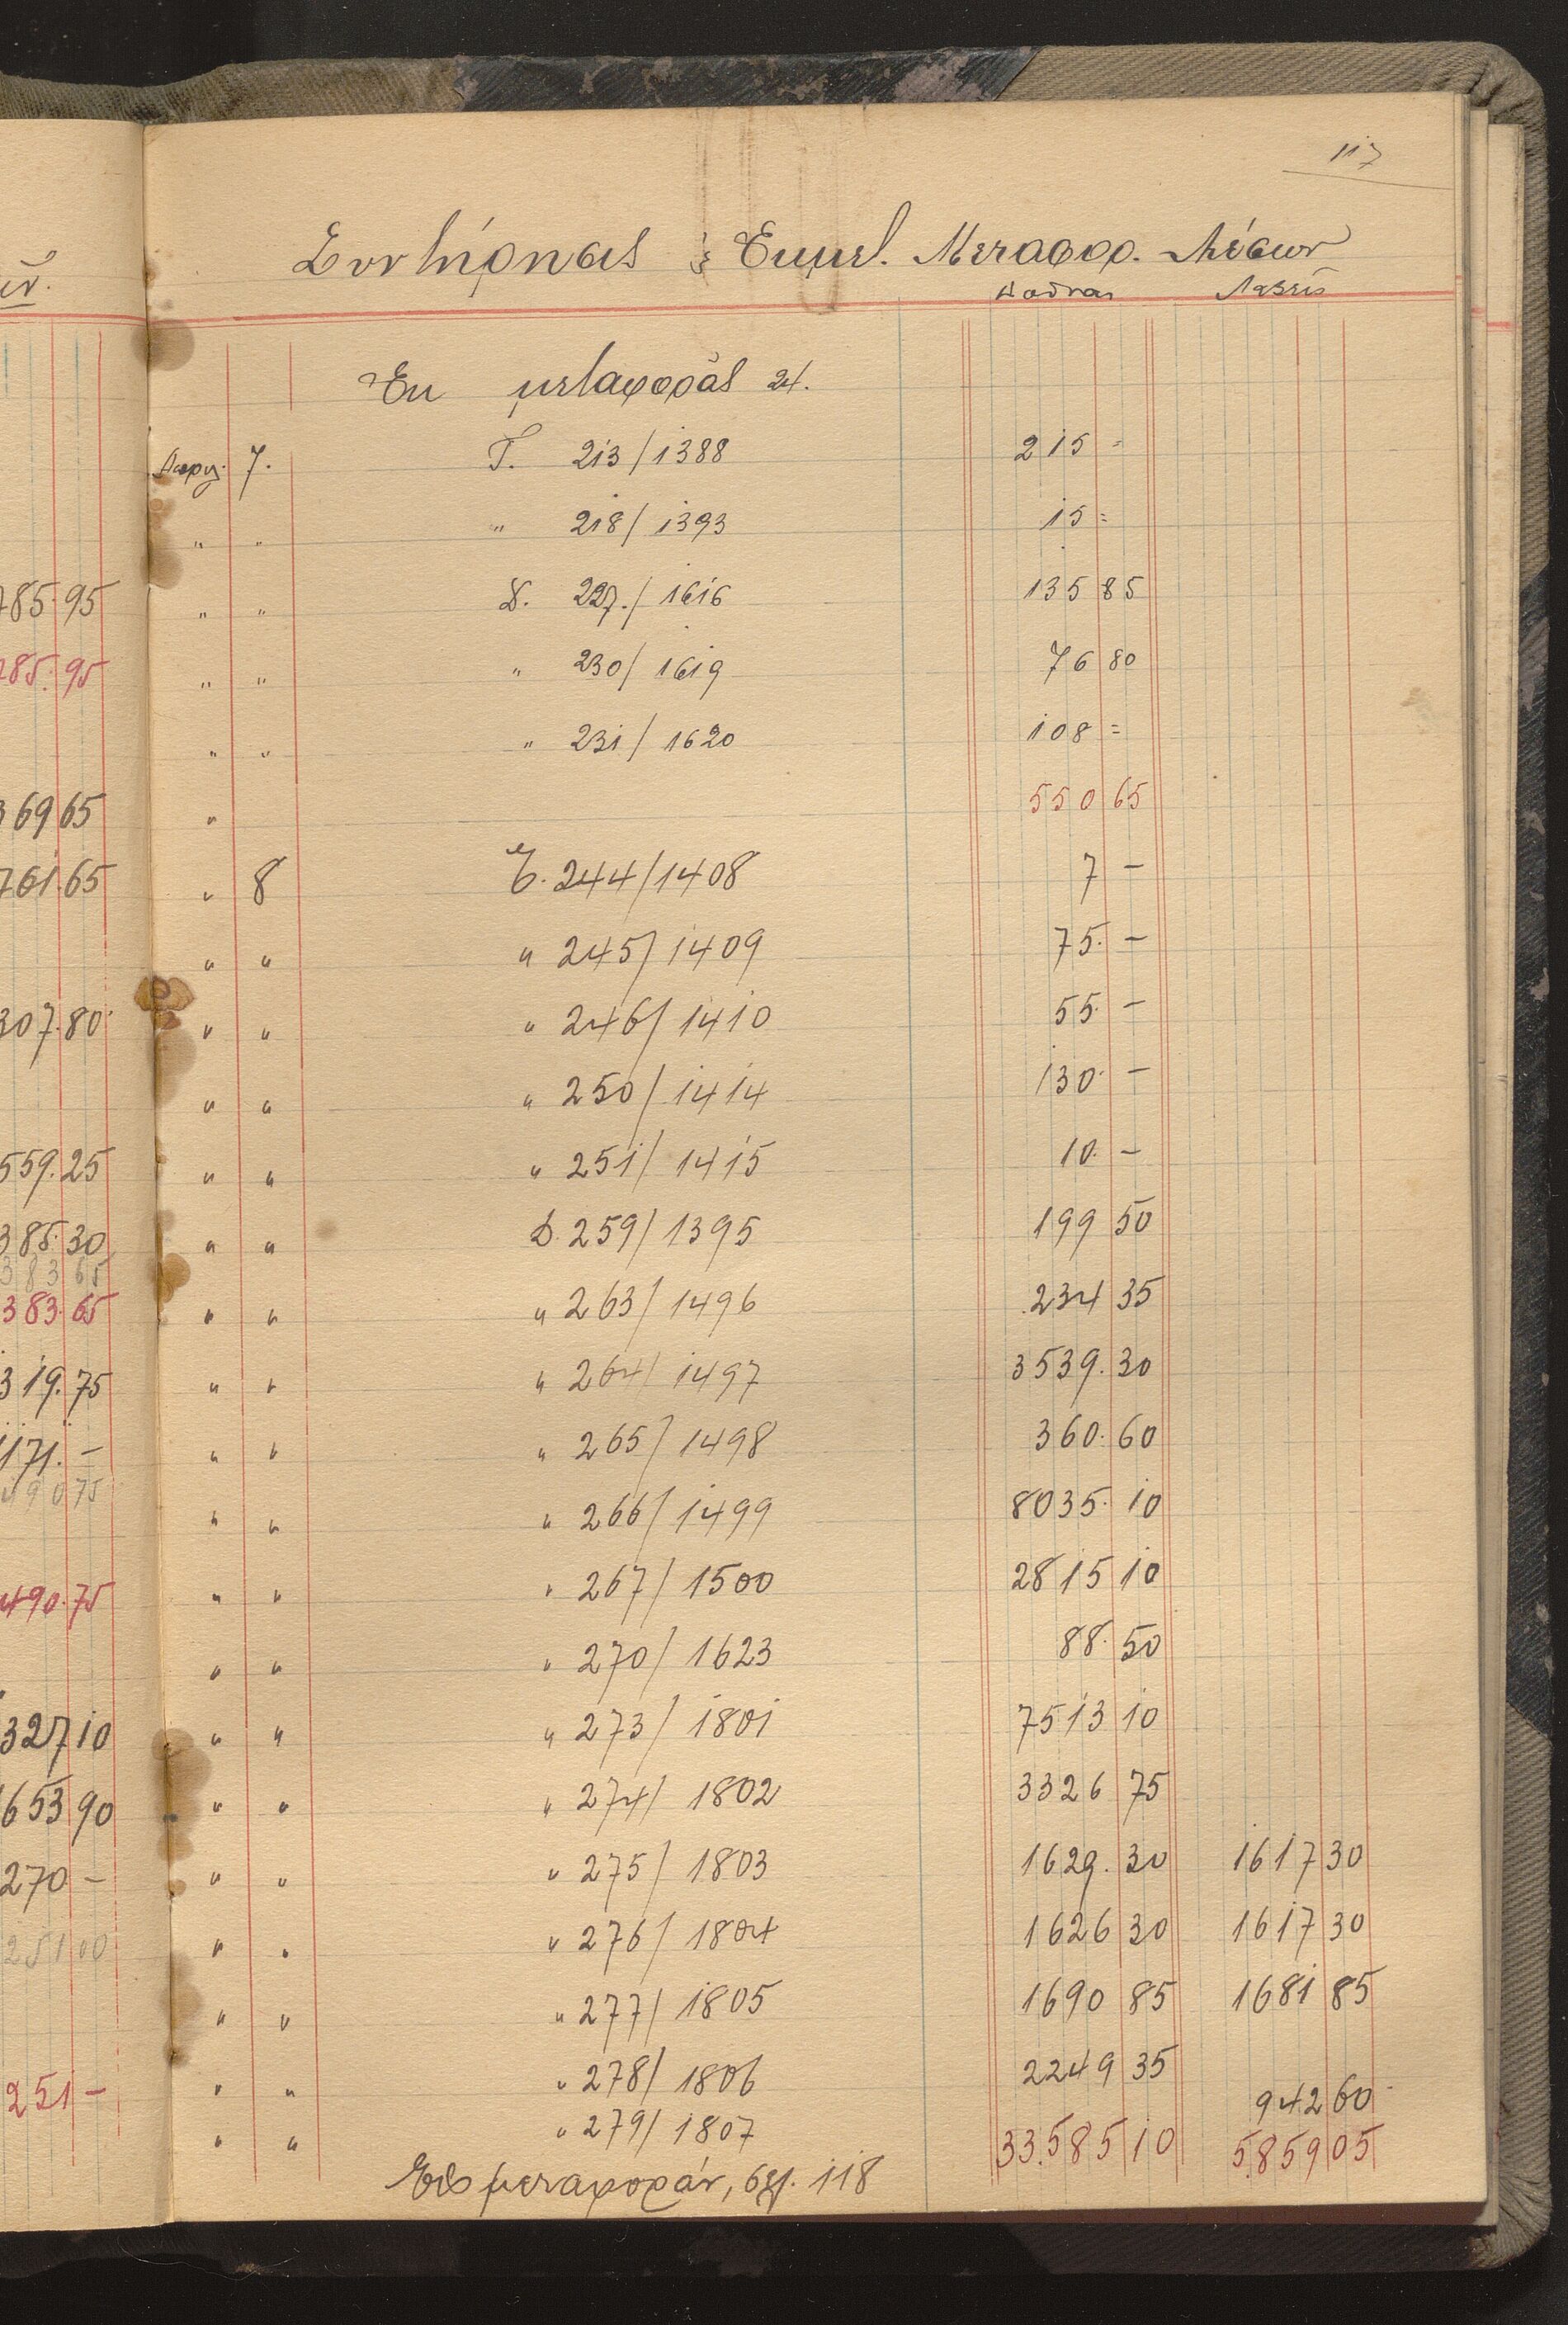 117
Συντήρησις & Εκμετ. Μεταφορ. Μέσων
Λαβείν
Εκ μεταφοράς
7. Γ. 213/1388 215 =
" " " 218/1393 15 =
" " Δ. 227./1616 135 85
" " " 230/1619 76 80
" " " 231/1620 108 =
" 550 65
" 8 Ε. 244/1408 7 -
" " " 245/1409 75. -
" " " 246/1410 55. -
" " " 250/1414 130. -
" " " 251/1415 10. -
" " Δ. 259/1395 199 50
" " " 263/1496 234 35
" " " 264/1497 3539. 30
" " " 265/1498 360. 60
" " " 266/1499 8035. 10
" " " 267/1500 2815 10
" " " 270/1623 88. 50
" " " 273/1801 7513 10
" " " 274/1802 3326 75
" " " 275/1803 1629. 30 1617 30
" " " 276/1804 1626 30 1617 30
" " " 277/1805 1690 85 1681 85
" " " 278/1806 2249 35
" " " 279/1807 942 60
Εις μεταφοράν, σελ. 118 33.585 10 5.859 05
785.95
285.95
369 65
761.65
307.80
559.25
385.30
383 65
383.65
319.75
1171. -
490 75
490.75
327 10
653 90
270 -
251 00
251 -